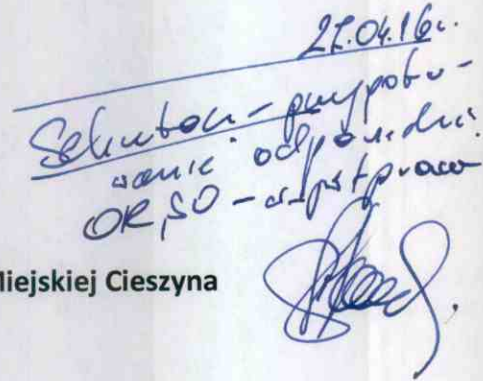 27.04.16r.
Sekretarz - przygoto-
wanie odpowiedzi.
OR, SO - współpraca
Miejskiej Cieszyna